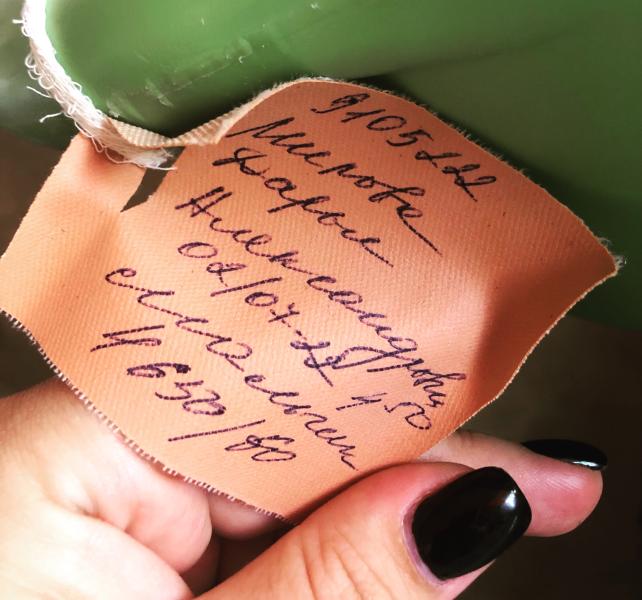 9105222
Мирова
Дарья
Александровна
02/07-22 4 50
мальчик
4630/60